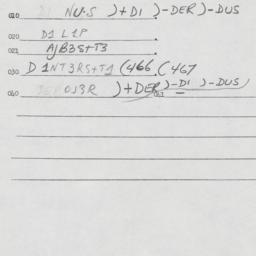 010 NU·S )+DI )-DER )-DUS
020 D1 L1P
021 AJB3S+T3
030 D 1NT3RS+T1 (466. (467
060 OJ3R )+DER )-DI )-DUS